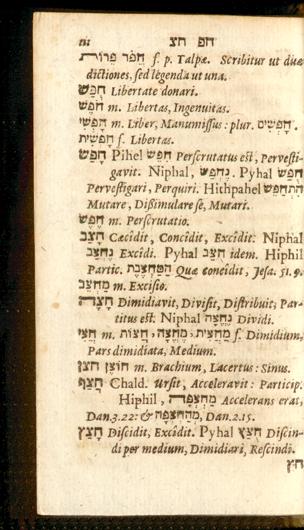 חפ חצ
חפר פרות f. p. Talpæ. Scribitur ut duæ
dictiones, sed legenda ut una.
חפש Libertate donari.
חפש m. Libertas, Ingenuitas.
חפשי m. Liber, Manumissus: plur. חפשים.
חפשית f. Libertas.
חפש Pihel חפש Perscrutatus est, Pervesti-
gavit. Niphal, נחפש. Pyhal חפש
Pervestigari, Perquiri. Hithpahel התחפש
Mutare, Dissimulare se, Mutari.
חפש m. Perscrutatio.
חצב Cæcîdit, Concîdit, Excîdit. Niphal
נחצב Excîdi. Pyhal חצב idem. Hiphil
Partic. המחצבת Quæ concîdit, Jesa. 51. 9.
מחצב m. Excisio.
חצה Dimidiavit, Divisit, Distribuit, Par-
titus est. Niphal נחצה Dividi.
חצי m. מחצית, מחצה, חצות f. Dimidium,
Pars dimidiata, Medium.
חצן חוצן m. Brachium, Lacertus: Sinus.
חצף Chald. Ursit, Acceleravit: Particip.
Hiphil, מחצפה Accelerans erat,
Dan. 3. 22: & מהחצפה, Dan. 2. 15.
חצץ Discidit, Excîdit. Pyhal חצץ Discin-
di per medium, Dimidiari, Rescindi.
חץ